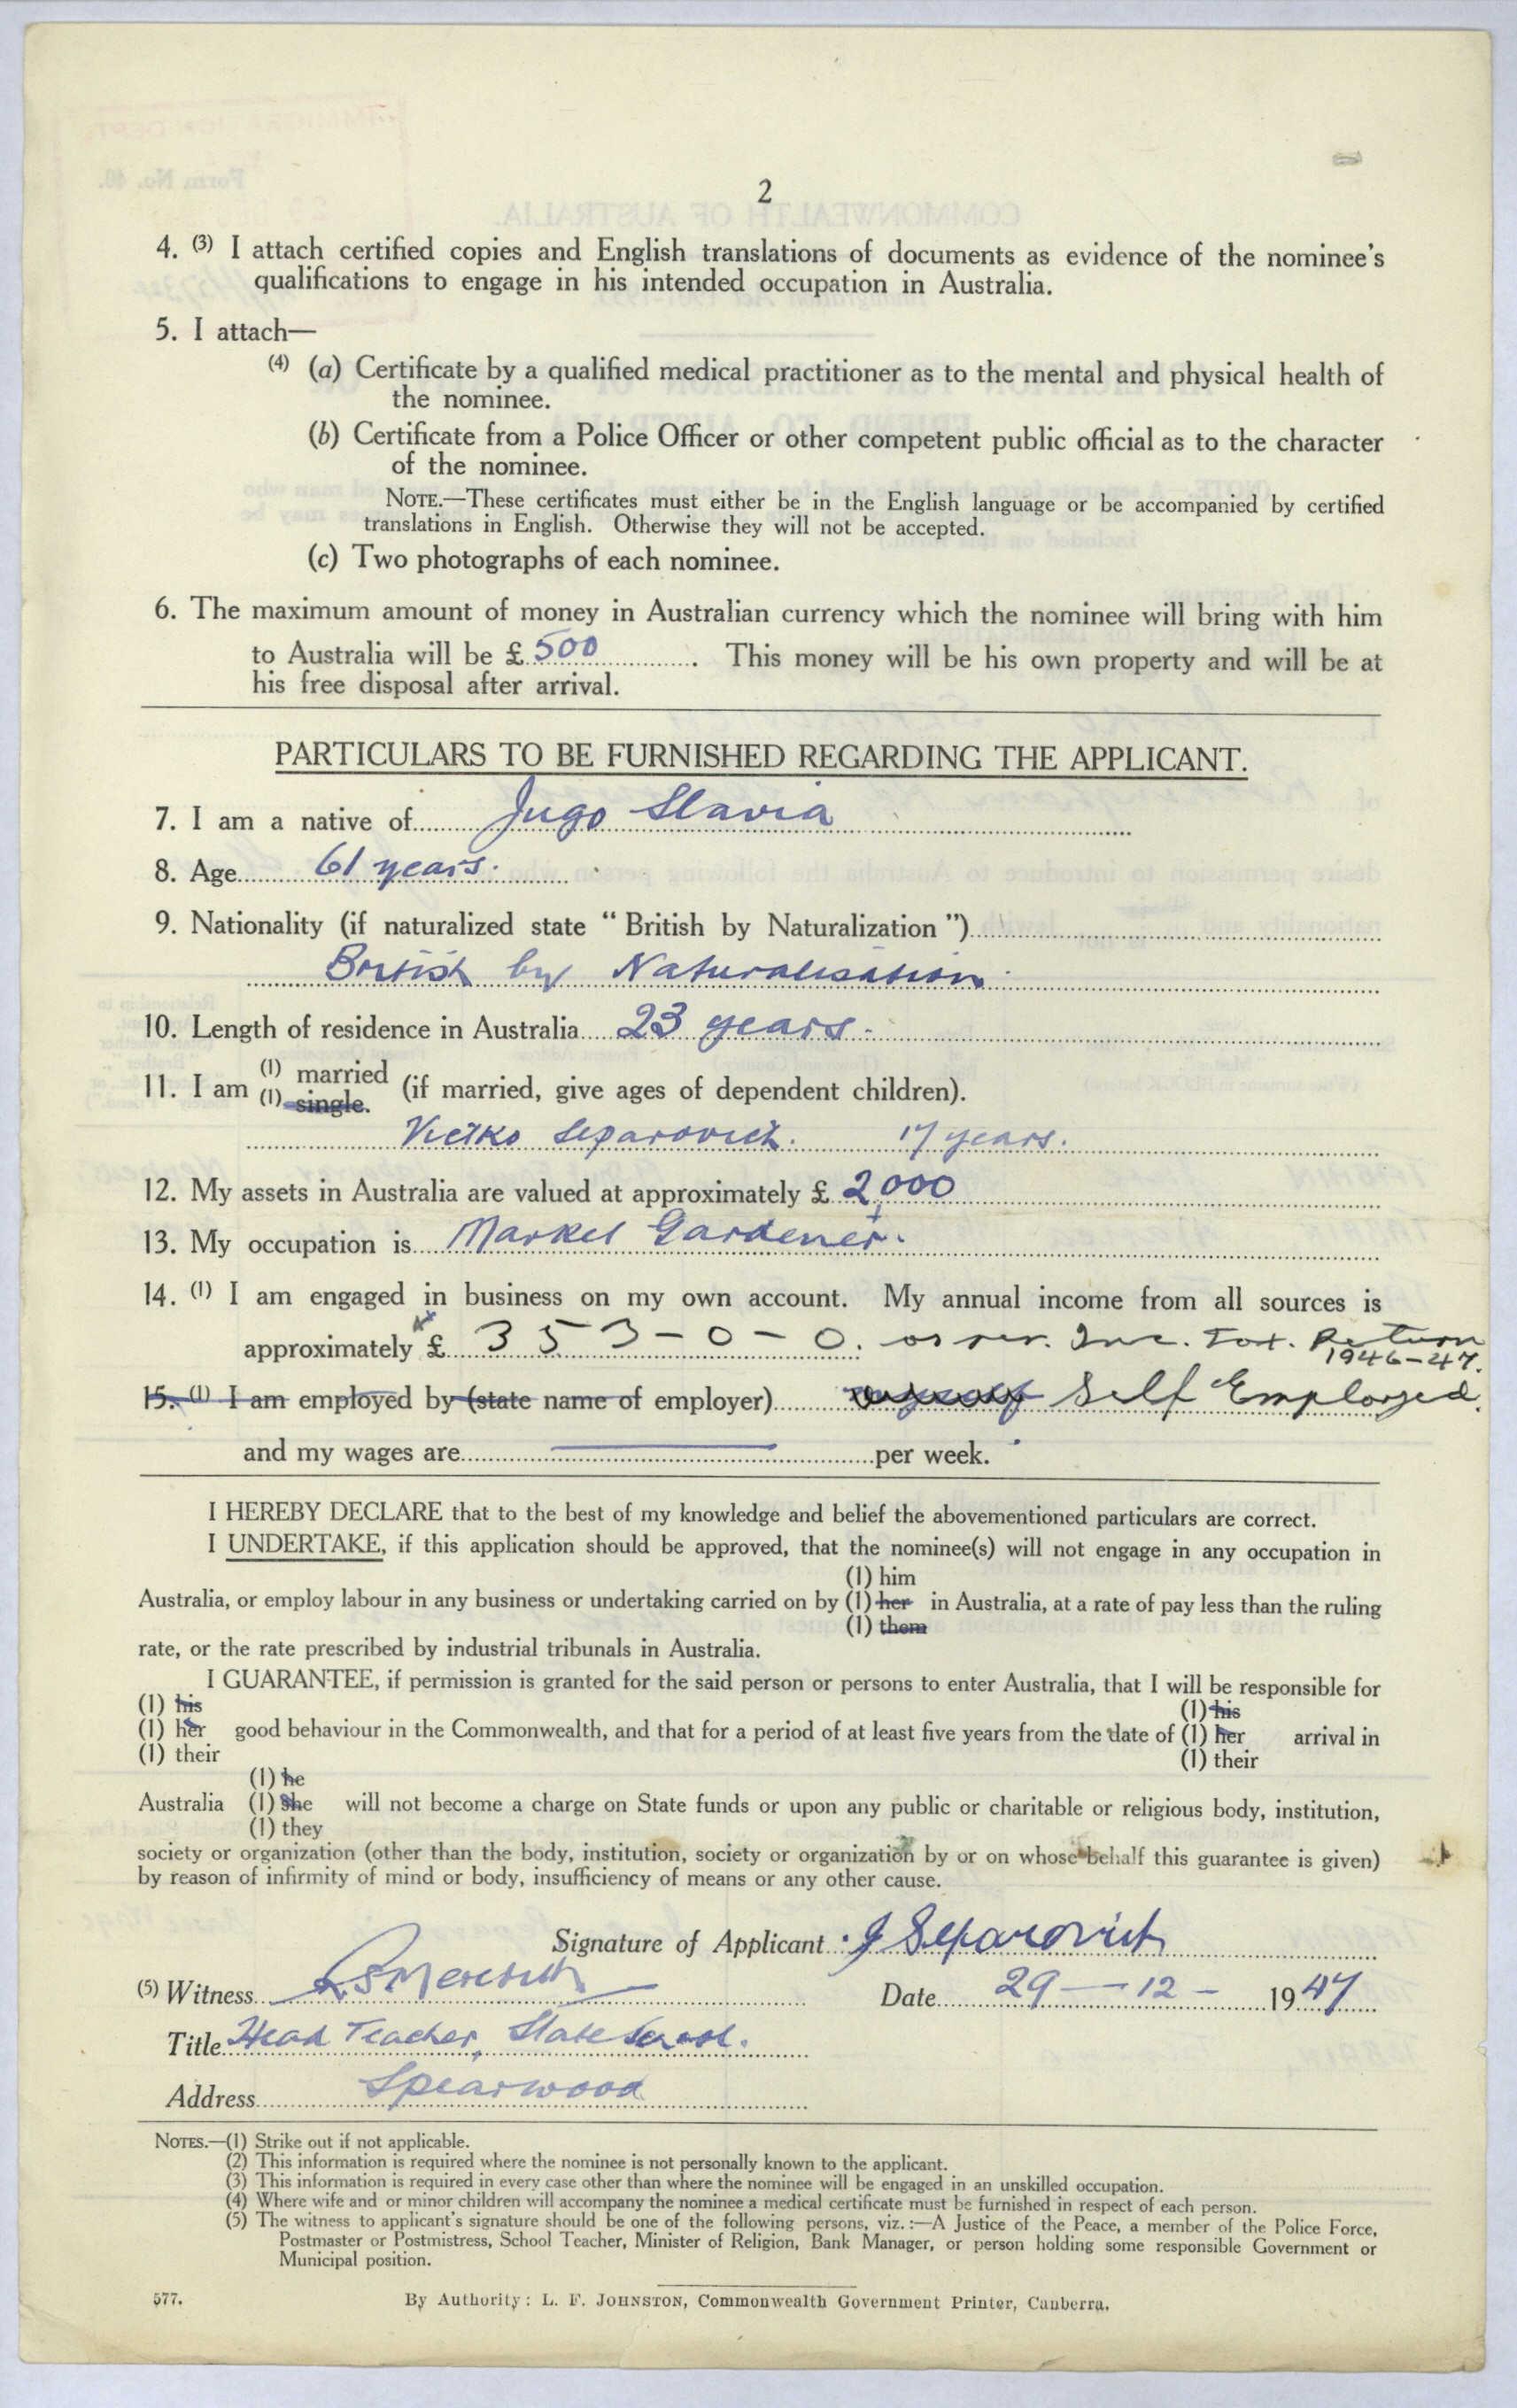 2
4. (3) I attach certified copies and English translations of documents as evidence of the nominee's
qualifications to engage in his intended occupation in Australia.
5. I attach—
(4) (a) Certificate by a qualified medical practitioner as to the mental and physical health of
the nominee.
(b) Certificate from a Police Officer or other competent public official as to the character
of the nominee.
NOTE.—These certificates must either be in the English language or be accompanied by certified
translations in English. Otherwise they will not be accepted.
(c) Two photographs of each nominee.
6. The maximum amount of money in Australian currency which the nominee will bring with him
to Australia will be £ 500. This money will be his own property and will be at
his free disposal after arrival.
PARTICULARS TO BE FURNISHED REGARDING THE APPLICANT.
7. I am a native of Jugo Slavia
8. Age 61 years.
9. Nationality (if naturalized state "British by Naturalization")
British by Naturalisation
10. Length of residence in Australia 23 years.
(1) married
11. I am (if married, give ages of dependent children).
(1) single.
Vietko Separovich. 17 years.
12. My assets in Australia are valued at approximately £ 2,000
13. My occupation is Market Gardener.
14. (1) I am engaged in business on my own account. My annual income from all sources is
approximately £ 353-0-0. as per. Inc. Tax. Return
1946-47.
15. (1) I am employed by (state name of employer) myself Self Employed.
and my wages are per week.
I HEREBY DECLARE that to the best of my knowledge and belief the abovementioned particulars are correct.
I UNDERTAKE, if this application should be approved, that the nominee(s) will not engage in any occupation in
(1) him
Australia, or employ labour in any business or undertaking carried on by (1) her in Australia, at a rate of pay less than the ruling
(1) them
rate, or the rate prescribed by industrial tribunals in Australia.
I GUARANTEE, if permission is granted for the said person or persons to enter Australia, that I will be responsible for
(1) his (1) his
(1) her good behaviour in the Commonwealth, and that for a period of at least five years from the date of (1) her arrival in
(1) their (1) their
(1) he
Australia (1) she will not become a charge on State funds or upon any public or charitable or religious body, institution,
(1) they
society or organization (other than the body, institution, society or organization by or on whose behalf this guarantee is given)
by reason of infirmity of mind or body, insufficiency of means or any other cause.
Signature of Applicant J Separovich
(5) Witness Meredith Date 29-12-1947
Title Head Teacher, State School.
Address Spearwood
NOTES.—(1) Strike out if not applicable.
(2) This information is required where the nominee is not personally known to the applicant.
(3) This information is required in every case other than where the nominee will be engaged in an unskilled occupation.
(4) Where wife and or minor children will accompany the nominee a medical certificate must be furnished in respect of each person.
(5) The witness to applicant's signature should be one of the following persons, viz.:—A Justice of the Peace, a member of the Police Force,
Postmaster or Postmistress, School Teacher, Minister of Religion, Bank Manager, or person holding some responsible Government or
Municipal position.
577. By Authority: L. F. JOHNSTON, Commonwealth Government Printer, Canberra.